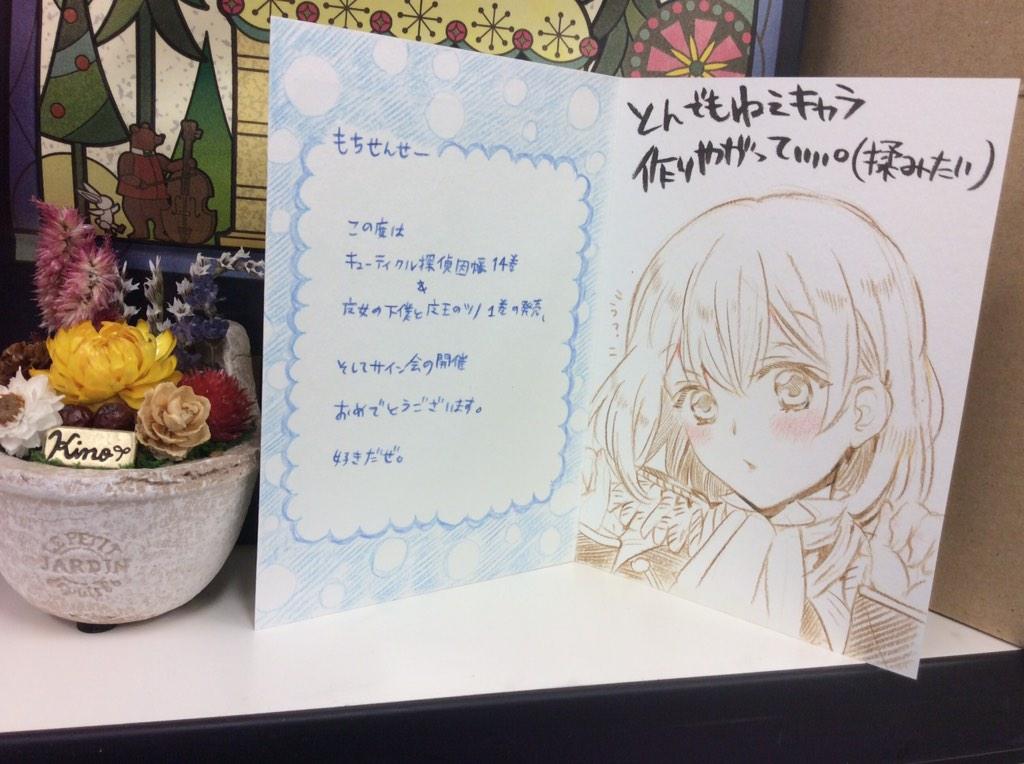 もちせんせー
この度は
キューティクル探偵因幡14巻
&
魔女の下僕と魔王のツノ 1巻の発売、
そしてサイン会の開催
おめでとうございます。
好きだぜ。
とんでもねえキャラ
作りやがってぃぃぃ。(揉みたい)
Kino
PETIT
JARDIN